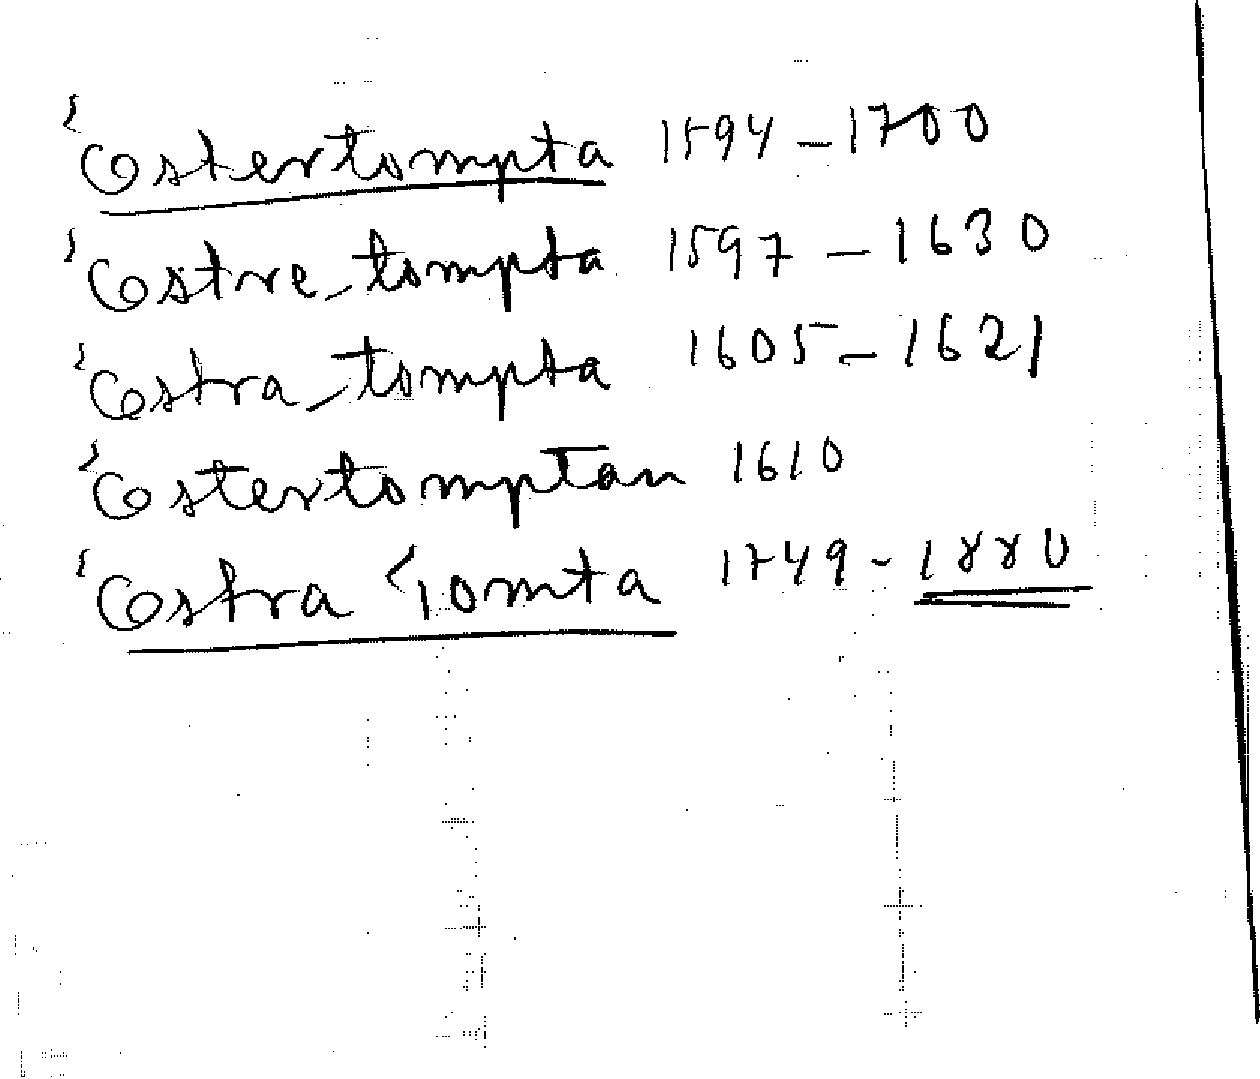 Ostertompta 1594-1700
Ostre-tompta 1597-1630
Ostra-tompta 1605-1621
Ostertomptan 1610
Ostra Tomta 1749-1880